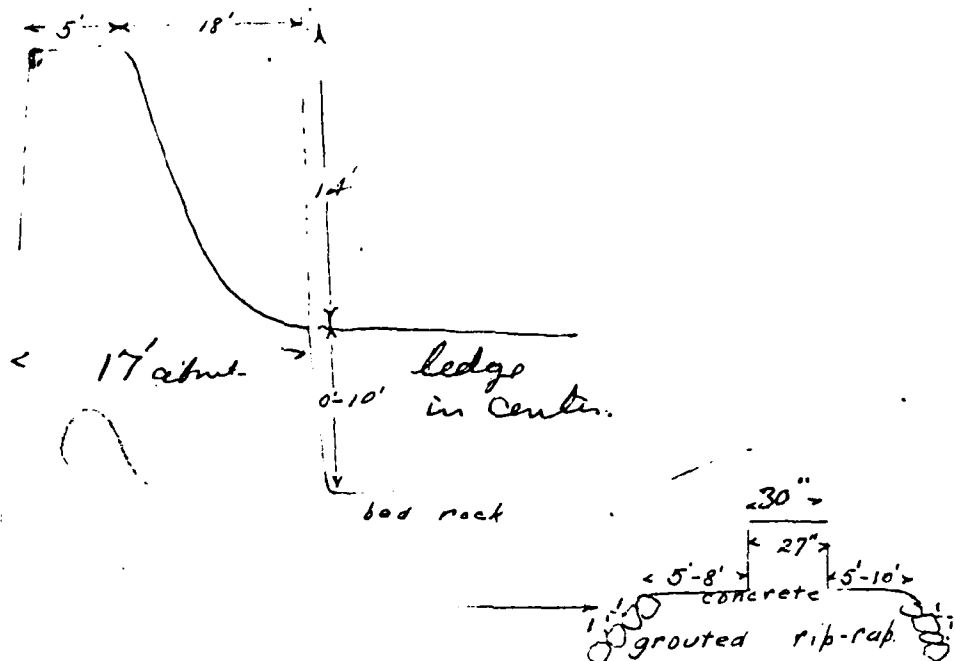 5' 18'
14'
17' about
ledge
0-10' in center.
bed rock
30"
27"
5'-8' 5'-10'
concrete
1 1 1 1
grouted rip-rap.